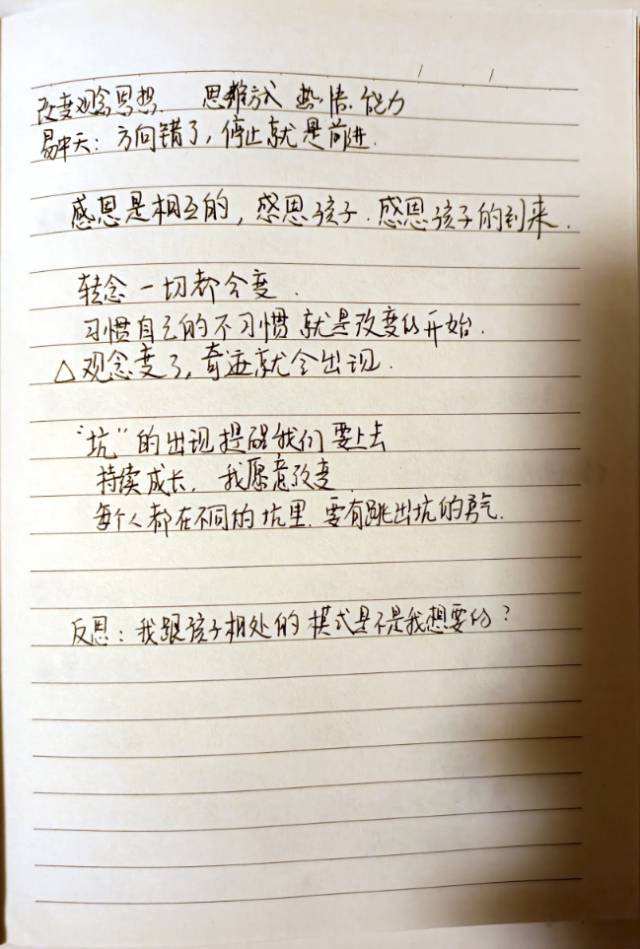 改变观念思想 思维方式 热情 能力
易中天：方向错了，停止就是前进.
感恩是相互的，感恩孩子.感恩孩子的到来.
转念一切都会变.
习惯自己的不习惯就是改变的开始.
△观念变了,奇迹就会出现.
“坑”的出现提醒我们要上去
持续成长，我愿意改变
每个人都在不同的坑里.要有跳出坑的勇气.
反思：我跟孩子相处的模式是不是我想要的？